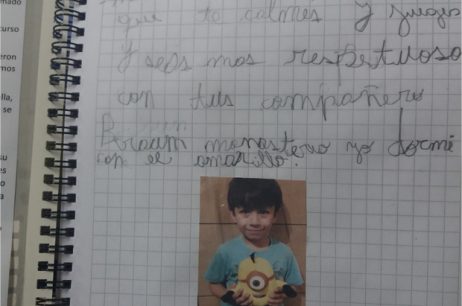 que te calmes y jueges
y seas mas respetuoso
con tus compañero
yo dormi
con el amarillo.
mado
curso
eron
mos
ella,
se
su
es
a